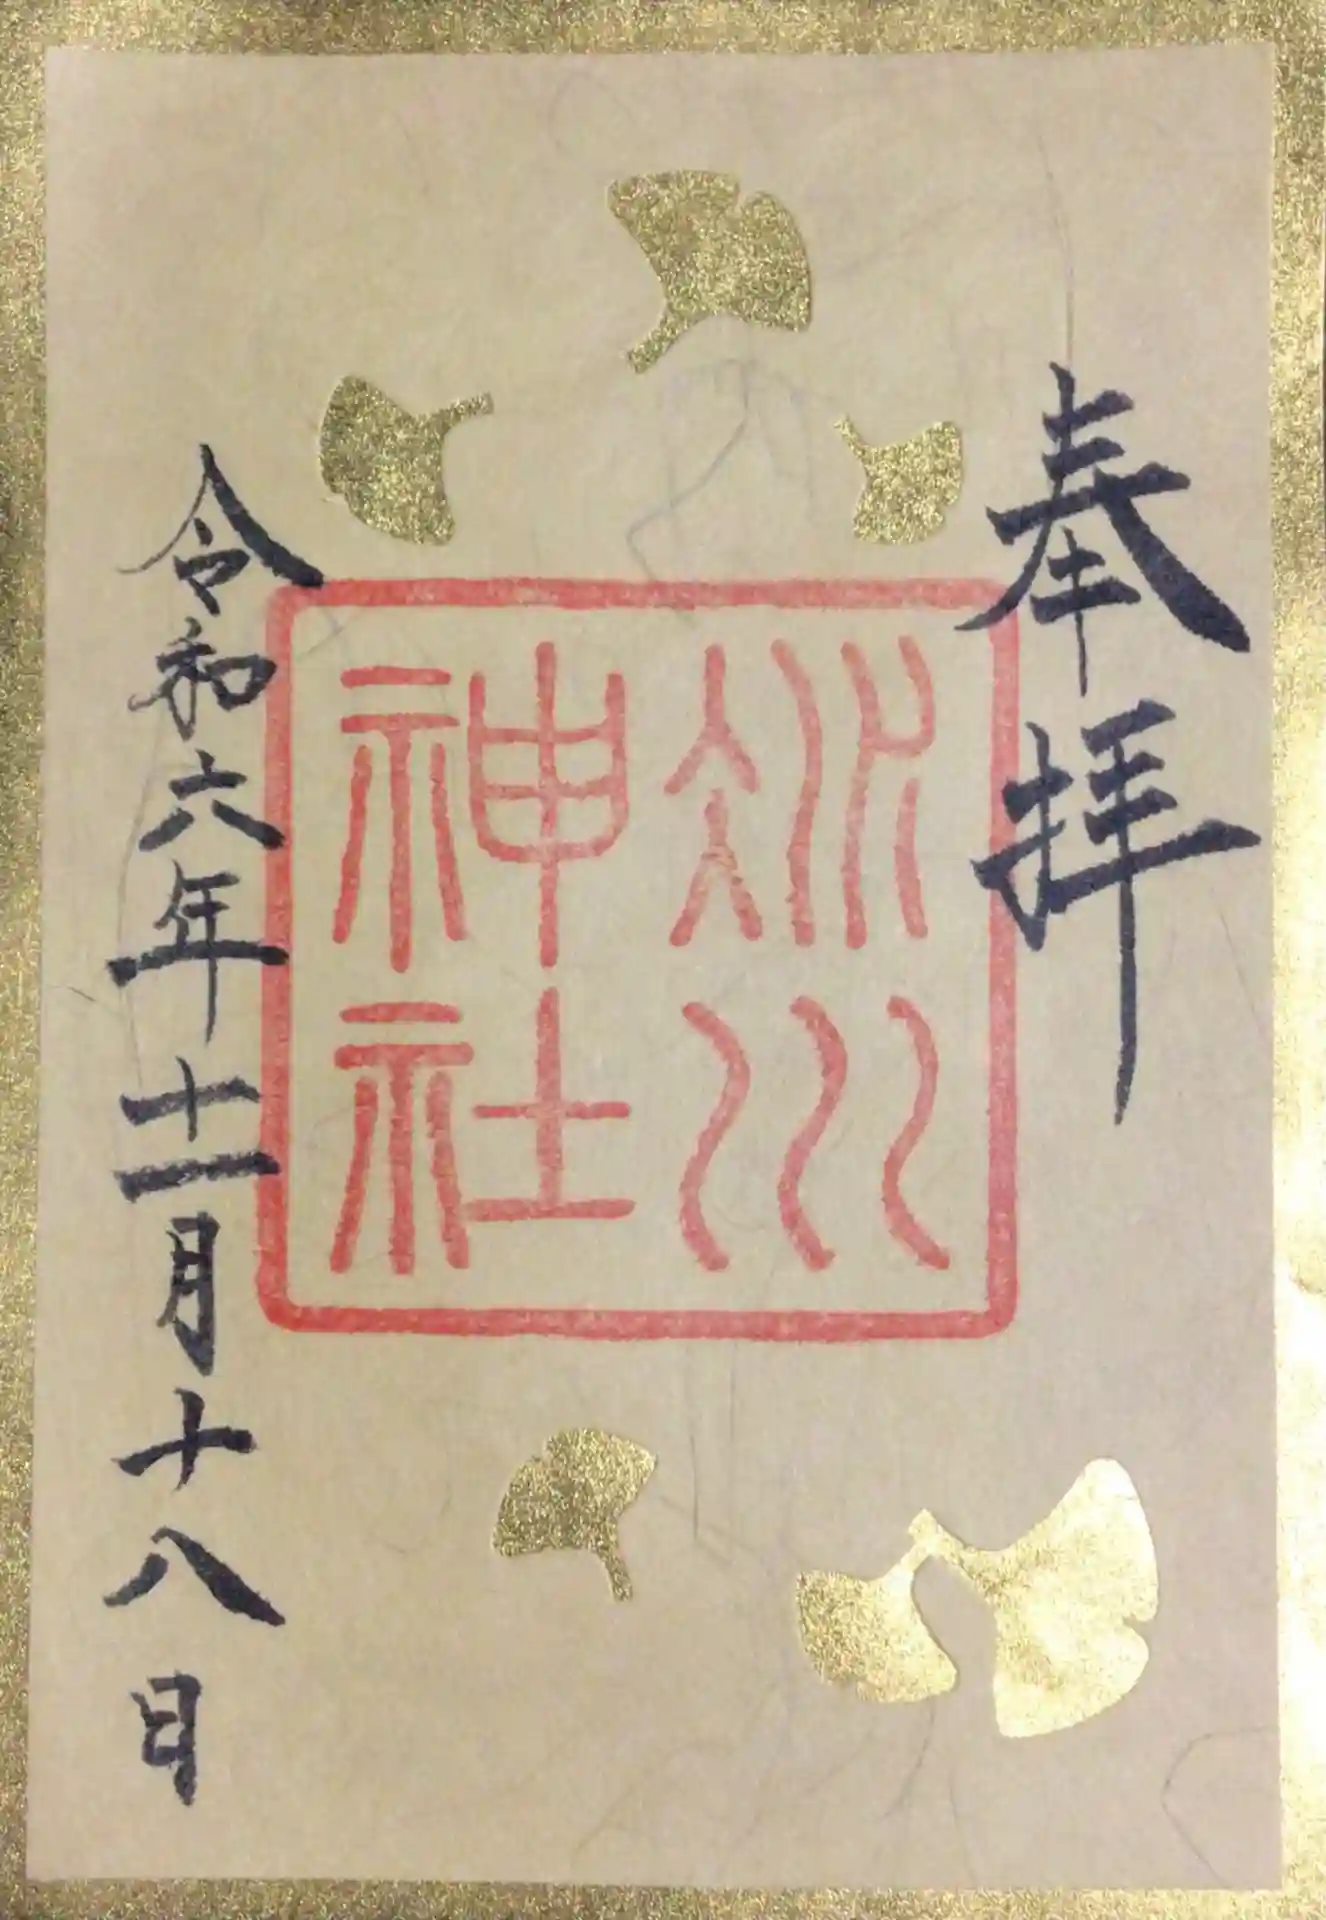 奉拝
冰川
神社
令和六年十一月十八日